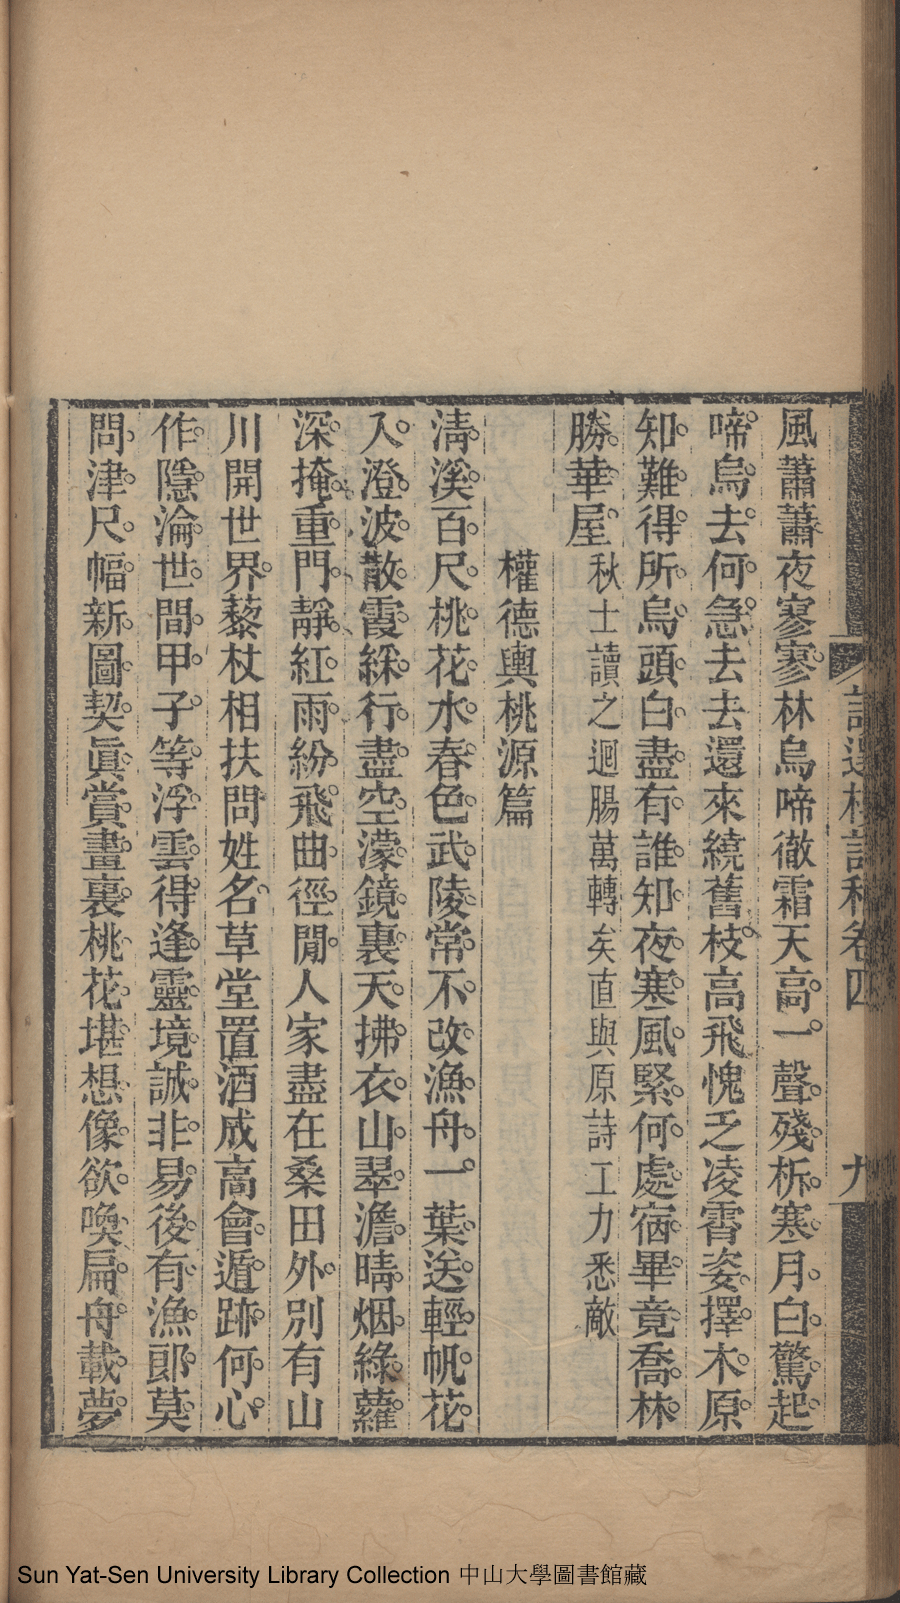 風蕭蕭夜寥寥林烏啼徹霜天高一聲殘柝寒月白驚起
啼烏去何急去去還來繞舊枝高飛愧乏凌霄姿擇木原
知難得所烏頭白盡有誰知夜寒風緊何處宿畢竟喬林
勝華屋秋士讀之迴腸萬轉矣直與原詩工力悉敵
權德輿桃源篇
清溪百尺桃花水春色武陵常不改漁舟一葉送輕帆花
入澄波散霞綵行盡空濛鏡裏天拂衣山翠澹晴烟綠蘿
深掩重門靜紅雨紛飛曲徑閒人家盡在桑田外別有山
川開世界藜杖相扶問姓名草堂置酒成高會遁跡何心
作隱淪世間甲子等浮雲得逢靈境誠非易後有漁郎莫
問津尺幅新圖契眞賞畫裏桃花堪想像欲喚扁舟載夢
卷四
九
Sun Yat-Sen University Library Collection 中山大學圖書館藏